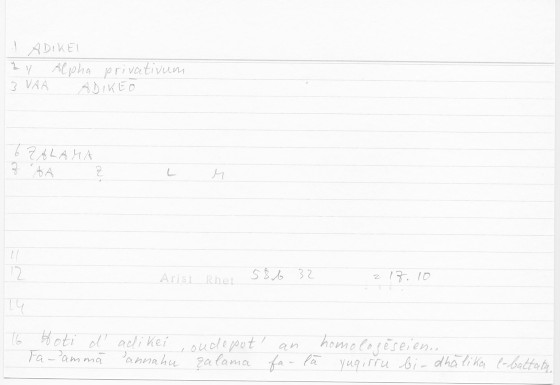 1 ADIKEI
2 v Alpha privativum
3 VAA ADIKEŌ
6 ẒALAMA
7 AA Ẓ L M
11
12 Arist Rhet 55b 32 = 17.10
14
16 Hoti d' adikei, oudepot' an homologēseien..
Fa-'ammā 'annahu ẓalama fa-lā yuqirru bi-dhālika l-battata.